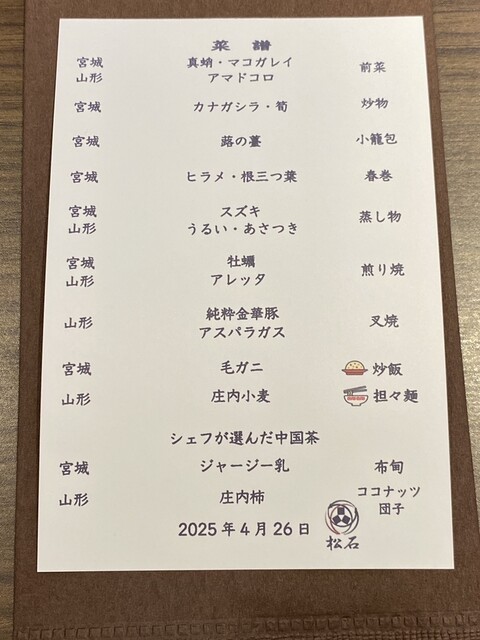 菜譜
宮城 真蛸・マコガレイ 前菜
山形 アマドコロ
宮城 カナガシラ・筍 炒物
宮城 蕗の薹 小籠包
宮城 ヒラメ・根三つ葉 春巻
宮城 スズキ 蒸し物
山形 うるい・あさつき
宮城 牡蠣 煎り焼
山形 アレッタ
山形 純粋金華豚 叉焼
アスパラガス
宮城 毛ガニ 炒飯
山形 庄内小麦 担々麺
シェフが選んだ中国茶
宮城 ジャージー乳 布甸
山形 庄内柿 ココナッツ
団子
2025年4月26日 松石